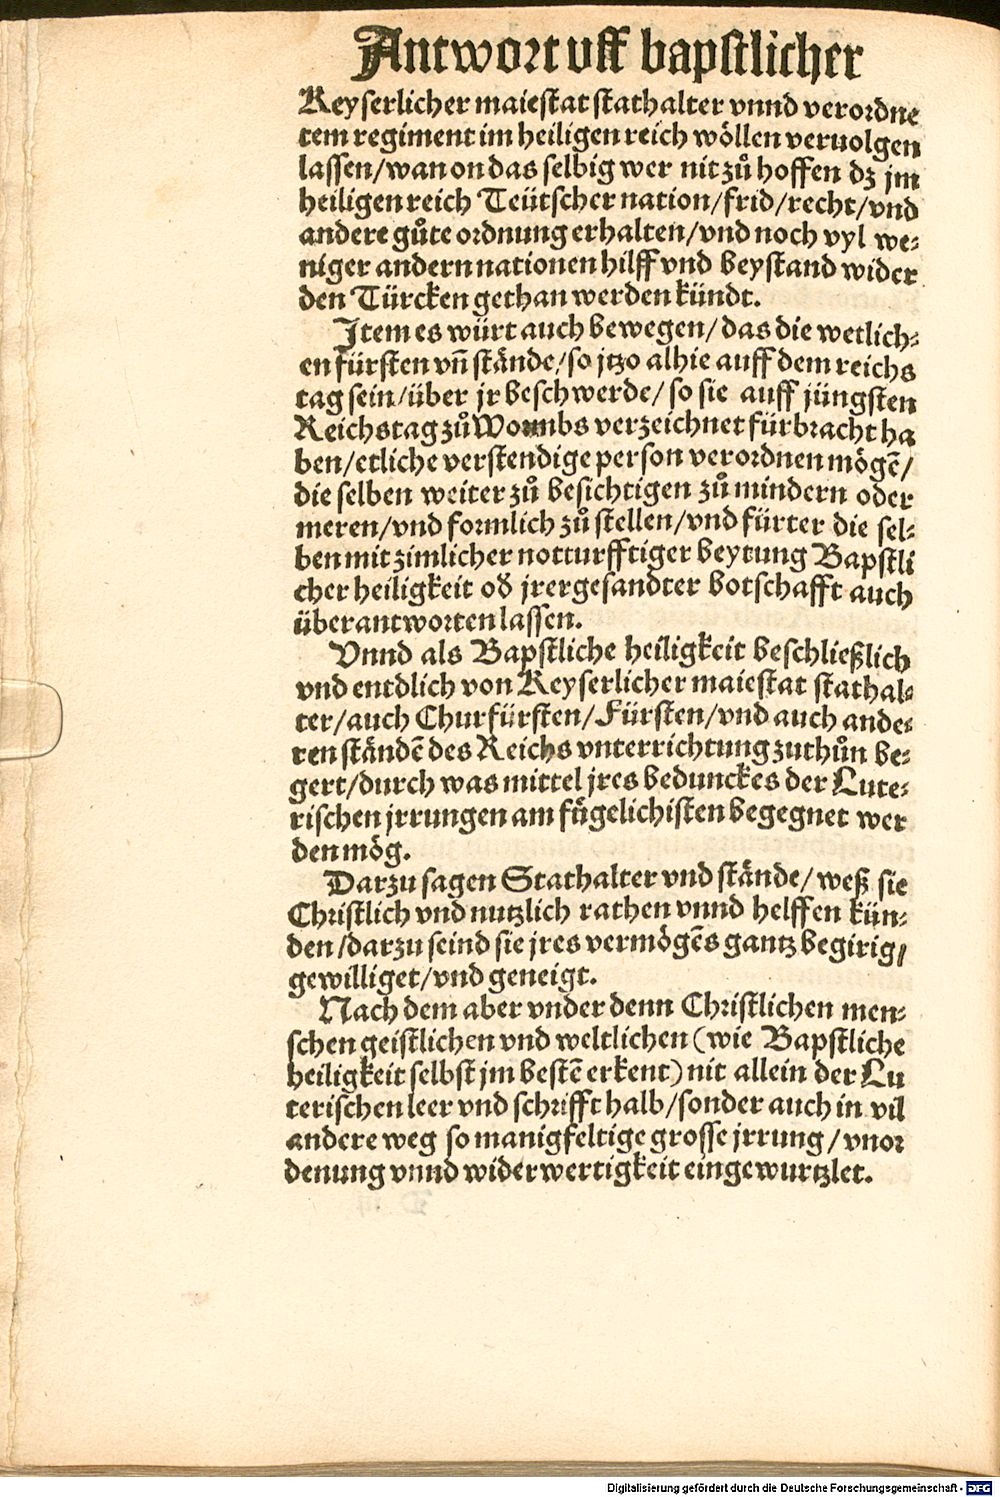 Antwort uff bapstlicher
Keyserlicher maiestat stathalter vnnd verordne
tem regiment im heiligen reich wöllen veruolgen
lassen/wan on das selbig wer nit zů hoffen dz jm
heiligen reich Teütscher nation/frid/recht/vnd
andere gůte ordnung erhalten/vnd noch vyl we⸗
niger andern nationen hilff vnd beystand wider
den Türcken gethan werden kündt.
Item es würt auch bewegen/das die wetlich⸗
en fürsten vñ stände/so jtzo alhie auff dem reichs
tag sein/über jr beschwerde/so sie auff jüngsten
Reichstag zů Wormbs verzeichnet fürbracht ha
ben/etliche verstendige person verordnen mögē/
die selben weiter zů besichtigen zů mindern oder
meren/vnd formlich zů stellen/vnd fürter die sel⸗
ben mit zimlicher notturfftiger beytung Bapstli
cher heiligkeit od̕ jrer gesandter botschafft auch
überantworten lassen.
Vnnd als Bapstliche heiligkeit beschließlich
vnd entdlich von Keyserlicher maiestat stathal⸗
ter/auch Churfürsten/Fürsten/vnd auch ande⸗
ren ständē des Reichs vnterrichtung zuthůn be⸗
gert/durch was mittel jres bedunckes der Lute⸗
rischen jrrungen am fůgelichisten begegnet wer
den mög.
Darzu sagen Stathalter vnd stände/weß sie
Christlich vnd nutzlich rathen vnnd helffen kün⸗
den/darzu seind sie jres vermögēs gantz begirig/
gewilliget/vnd geneigt.
Nach dem aber vnder denn Christlichen men⸗
schen geistlichen vnd weltlichen (wie Bapstliche
heiligkeit selbst jm bestē erkent) nit allein der Lu
terischen leer vnd schrifft halb/sonder auch in vil
andere weg so manigfeltige grosse jrrung/vnor
denung vnnd widerwertigkeit eingewurtzlet.
Digitalisierung gefördert durch die Deutsche Forschungsgemeinschaft - DFG